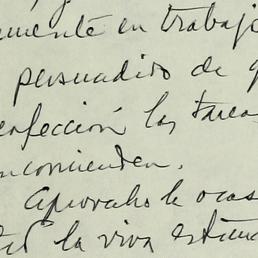 mente en trabajo
persuadido de q
erfección las tarea
ncomienden.
Aprovecho la ocas
la viva estima